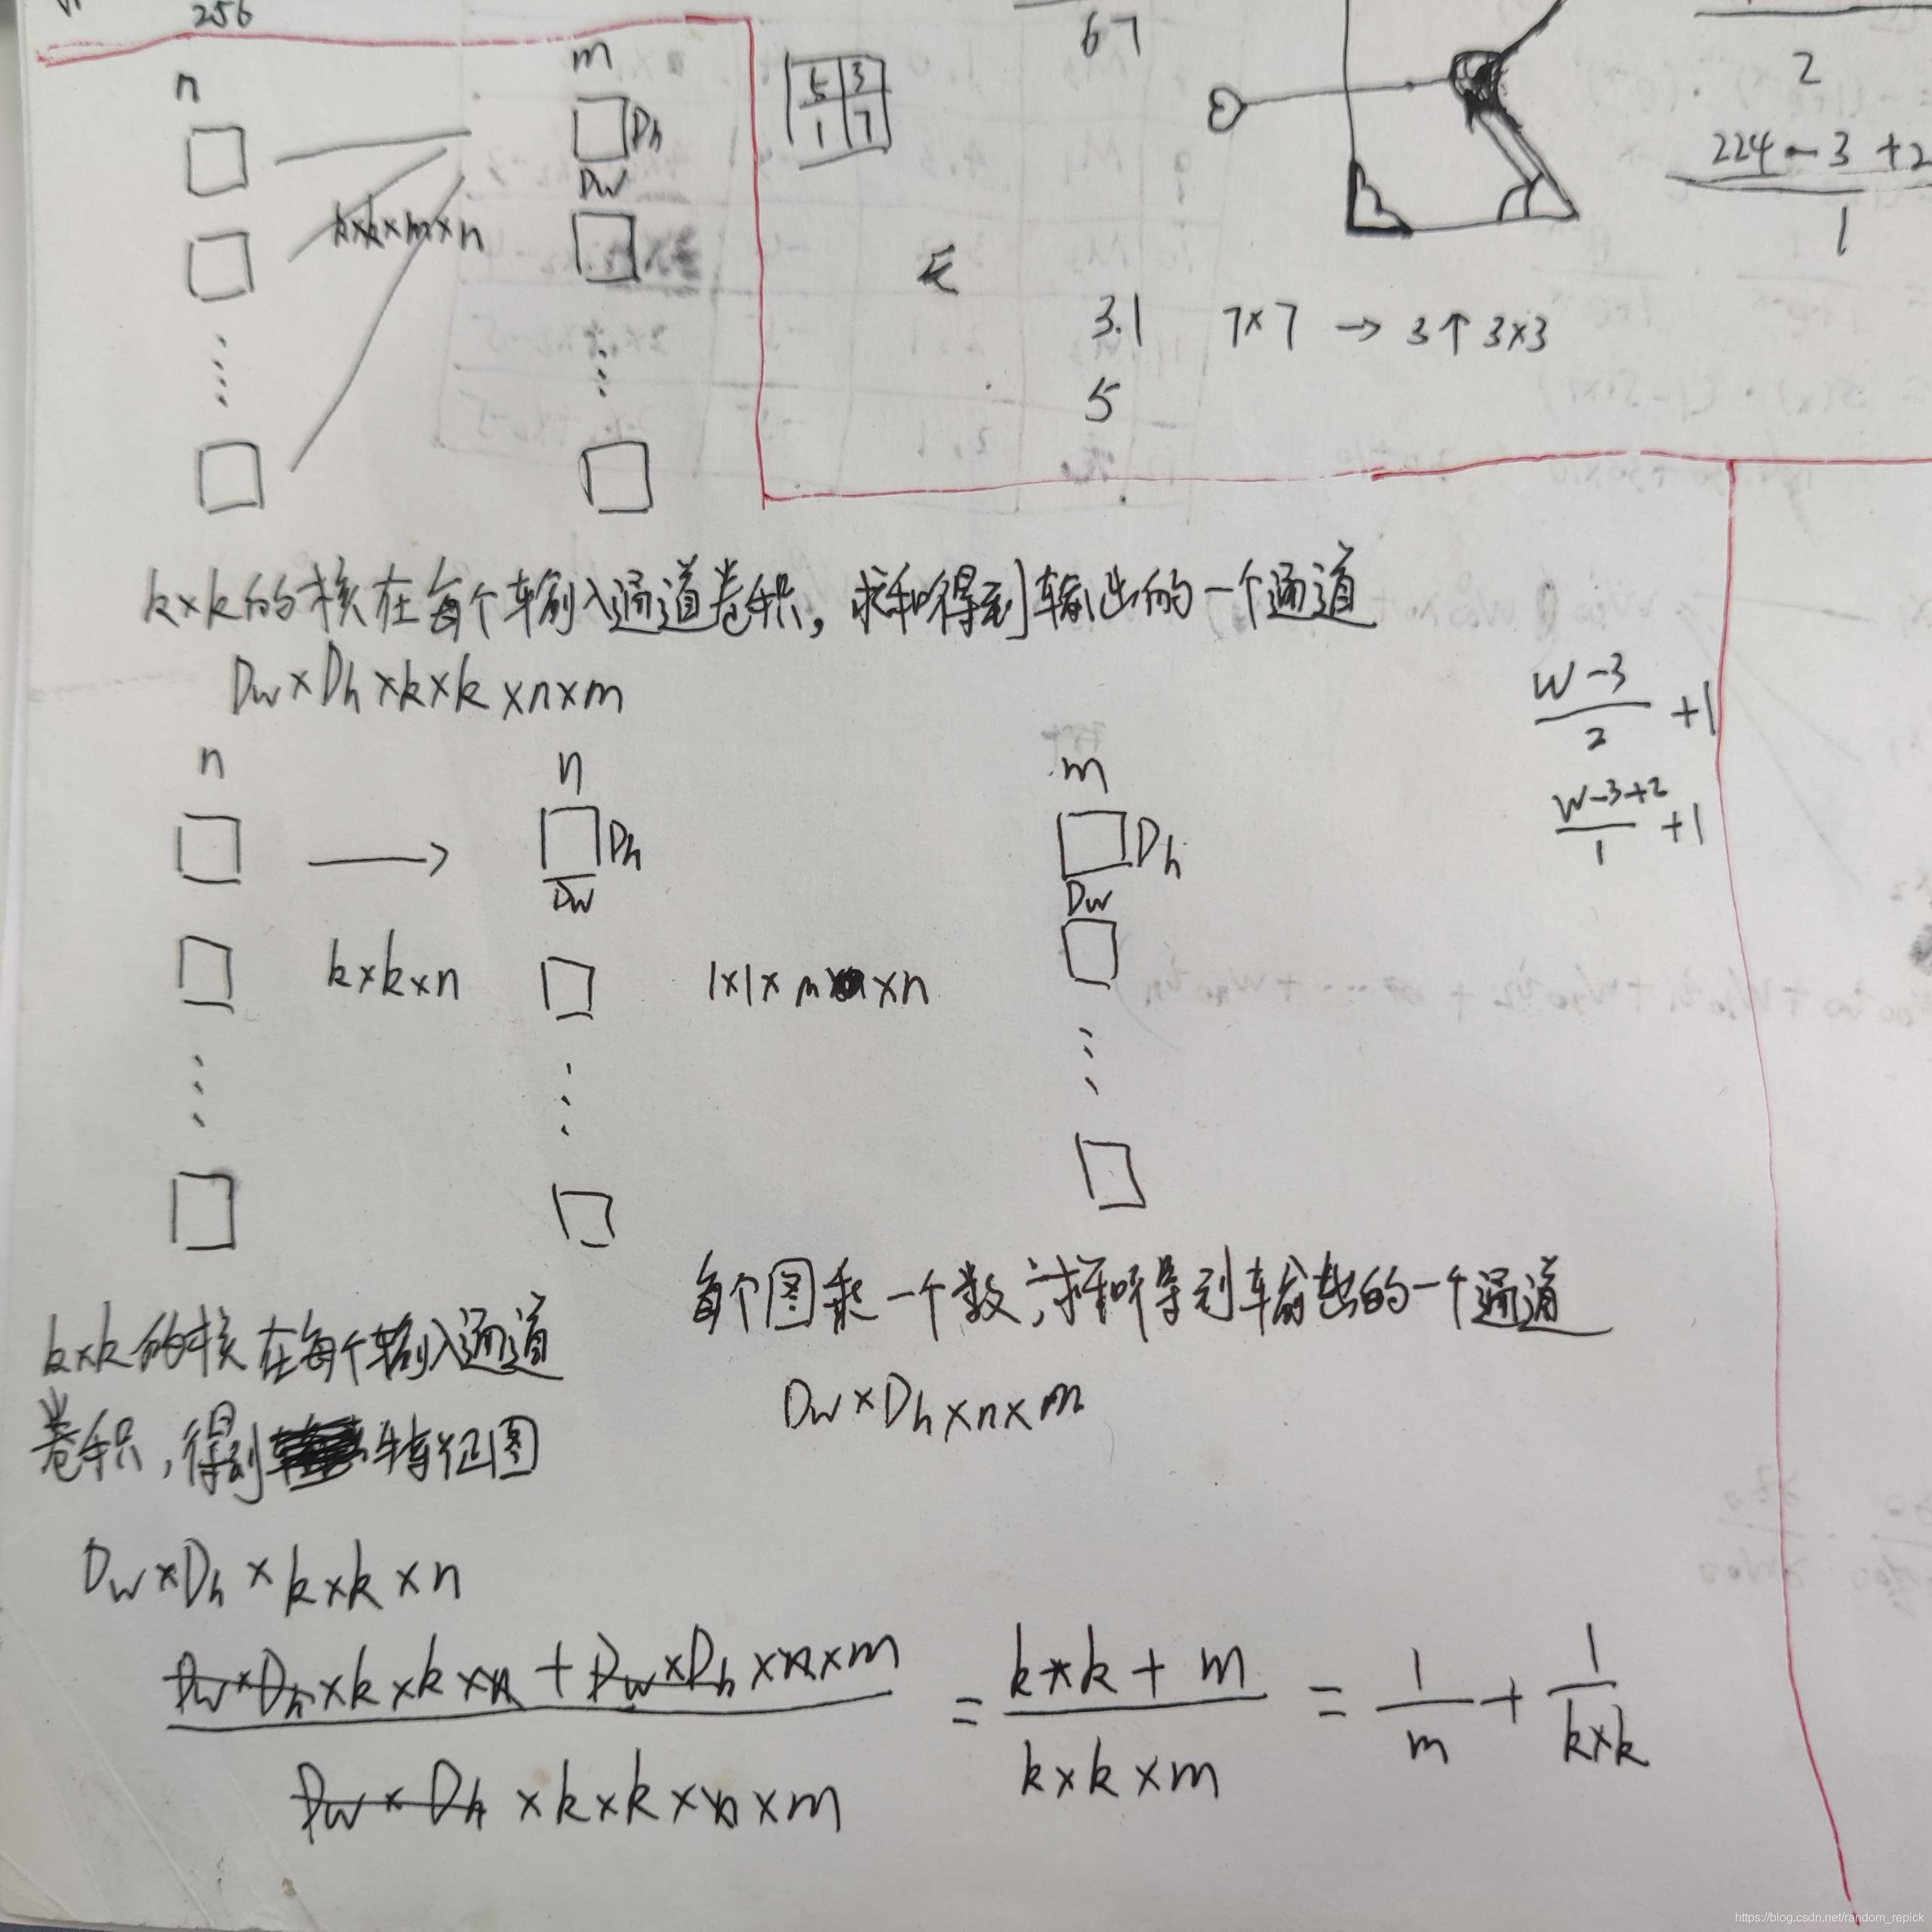 256
67
2
224-3+2
1
n
m
Dh
Dw
k×k×m×n
5 3
1 7
3.1 7×7 → 3个 3×3
5
k×k的核在每个输入通道卷积，求和得到输出的一个通道
Dw×Dh×k×k×n×m
W-3
2
+1
W-3+2
1
+1
n
n
m
Dh
Dw
Dh
Dw
k×k×n
1×1×m×n
每个图乘一个数，求和得到输出的一个通道
Dw×Dh×n×m
k×k的核在每个输入通道
卷积，得到特征图
Dw×Dh×k×k×n
Dw×Dh×k×k×n + Dw×Dh×n×m
Dw×Dh×k×k×n×m
= k×k+m
k×k×m
= 1
m
+ 1
k×k
https://blog.csdn.net/random_repick